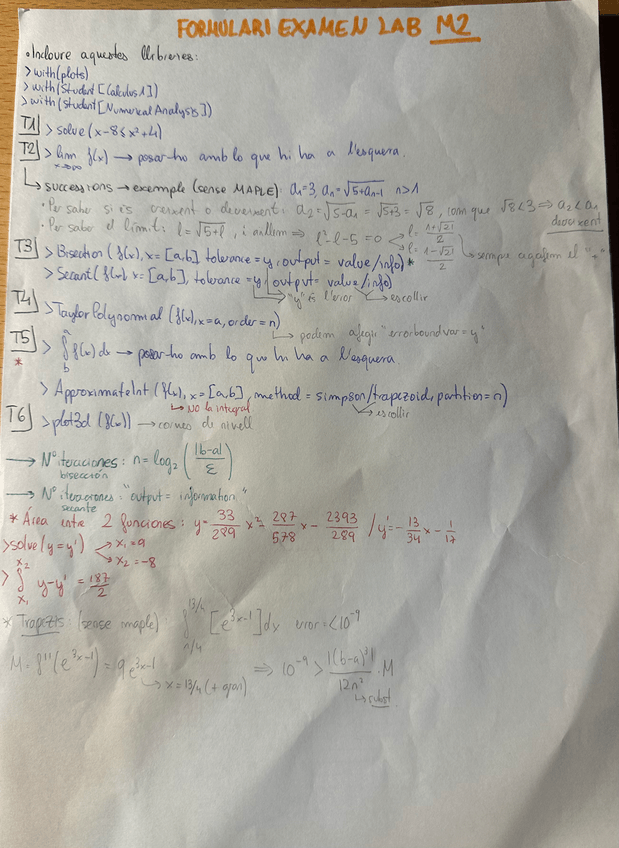 FORMULARI EXAMEN LAB M2
• Incloure aquestes llibreries:
> with(plots)
> with(Student[Calculus1])
> with(Student[NumericalAnalysis])
T1 > solve(x-8≤x²+4)
T2 > lim x→∞ f(x) → posar-ho amb lo que hi ha a l'esquerra.
↳ successions → exemple (sense MAPLE): a₁=3, aₙ=√5+aₙ₋₁ n>1
• Per saber si és creixent o decreixent: a₂=√5-a₁ = √5+3 = √8, com que √8<3 ⇒ a₂<a₁ decreixent
• Per saber el límit: l=√5+l, i aïllem ⇒ l²-l-5=0 l=1+√21/2 l=1-√21/2 ↳ sempre agafem el "+"
T3 > Bisection(f(x), x=[a,b], tolerance=y, output=value/info)*
> Secant(f(x), x=[a,b], tolerance=y, output=value/info)
↳ "y" és l'error ↳ escollir
T4 > TaylorPolynomial(f(x), x=a, order=n)
↳ podem afegir "errorboundvar=y"
T5 > ∫ a b f(x)dx → posar-ho amb lo que hi ha a l'esquerra
*
> ApproximateInt(f(x), x=[a,b], method=simpson/trapezoid, partition=n)
↳ NO la integral ↳ escollir
T6 > plot3d(f(x)) → corves de nivell
→ Nº iteraciones: n=log₂(|b-a|/ε)
bisección
→ Nº iteraciones: "output=information"
secante
* Área entre 2 funciones: y=33/289 x² - 287/578 x - 2393/289 / y'=-13/34 x - 1/17
> solve(y=y') x₁=9 x₂=-8
> ∫ x₂ x₁ y-y' = 187/2
* Trapezis: (sense maple) ∫ 13/4 [e³ˣ⁻¹]dx error=<10⁻⁹
M=f''(e³ˣ⁻¹)=9e³ˣ⁻¹ ⇒ 10⁻⁹>|(b-a)³|/12n² · M
↳ x=13/4 (+ gran) ↳ subst